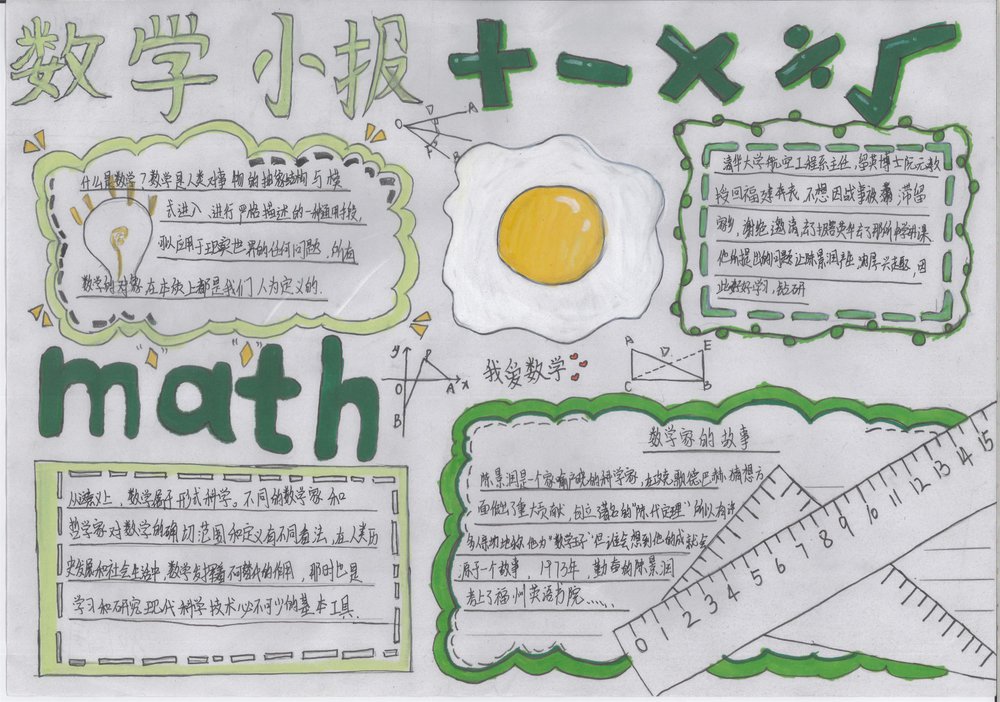 数学小报
+ - × ÷ √
什么是数学？数学是人类对事物的抽象结构与模
式进入、进行严格描述的一种通用手段，
可以应用于现实世界的任何问题，所有
数学的对象在本质上都是我们人为定义的.
O D A
F B
清华大学航空工程系主任，留英博士沈元教
授回福建奔丧，不想因战事被滞留
家乡，
他所提出的问题让陈景润产生浓厚兴趣，因
此好好学习，钻研
math
y
P
O A x
B
我爱数学
A D E
C B
从意义上，数学属于形式科学。不同的数学家和
哲学家对数学的确切范围和定义有不同看法，在人类历
史发展和社会生活中，数学发挥着不可替代的作用，那时也是
学习和研究现代科学技术必不可少的基本工具.
数学家的故事
陈景润是一个家喻户晓的科学家，在攻克歌德巴赫猜想方
面做出了重大贡献，创立著名的"陈代定理"所以有许
多人亲切地称他为"数学王子"但谁会想到他的成就会
源于一个故事，1973年，勤奋的陈景润
考上了福州英语书院......
0 1 2 3 4 5 6 7 8 9 10 11 12 13 14 15